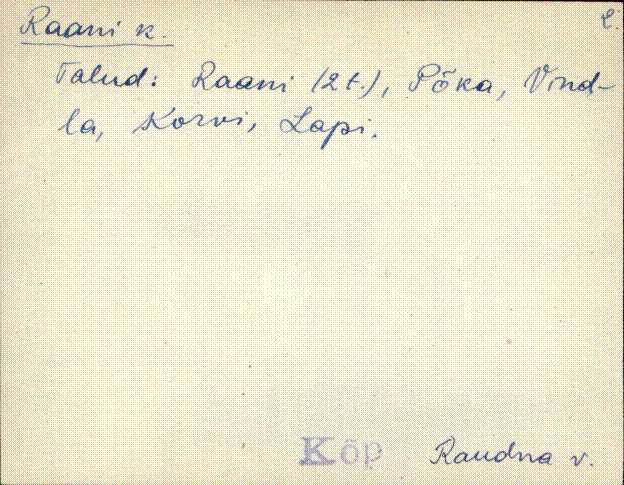 Raani k. 2.
Talud: Raani (2 t.), Põka, Vind-
la, Korvi, Lapi.
Kõp Raudna v.